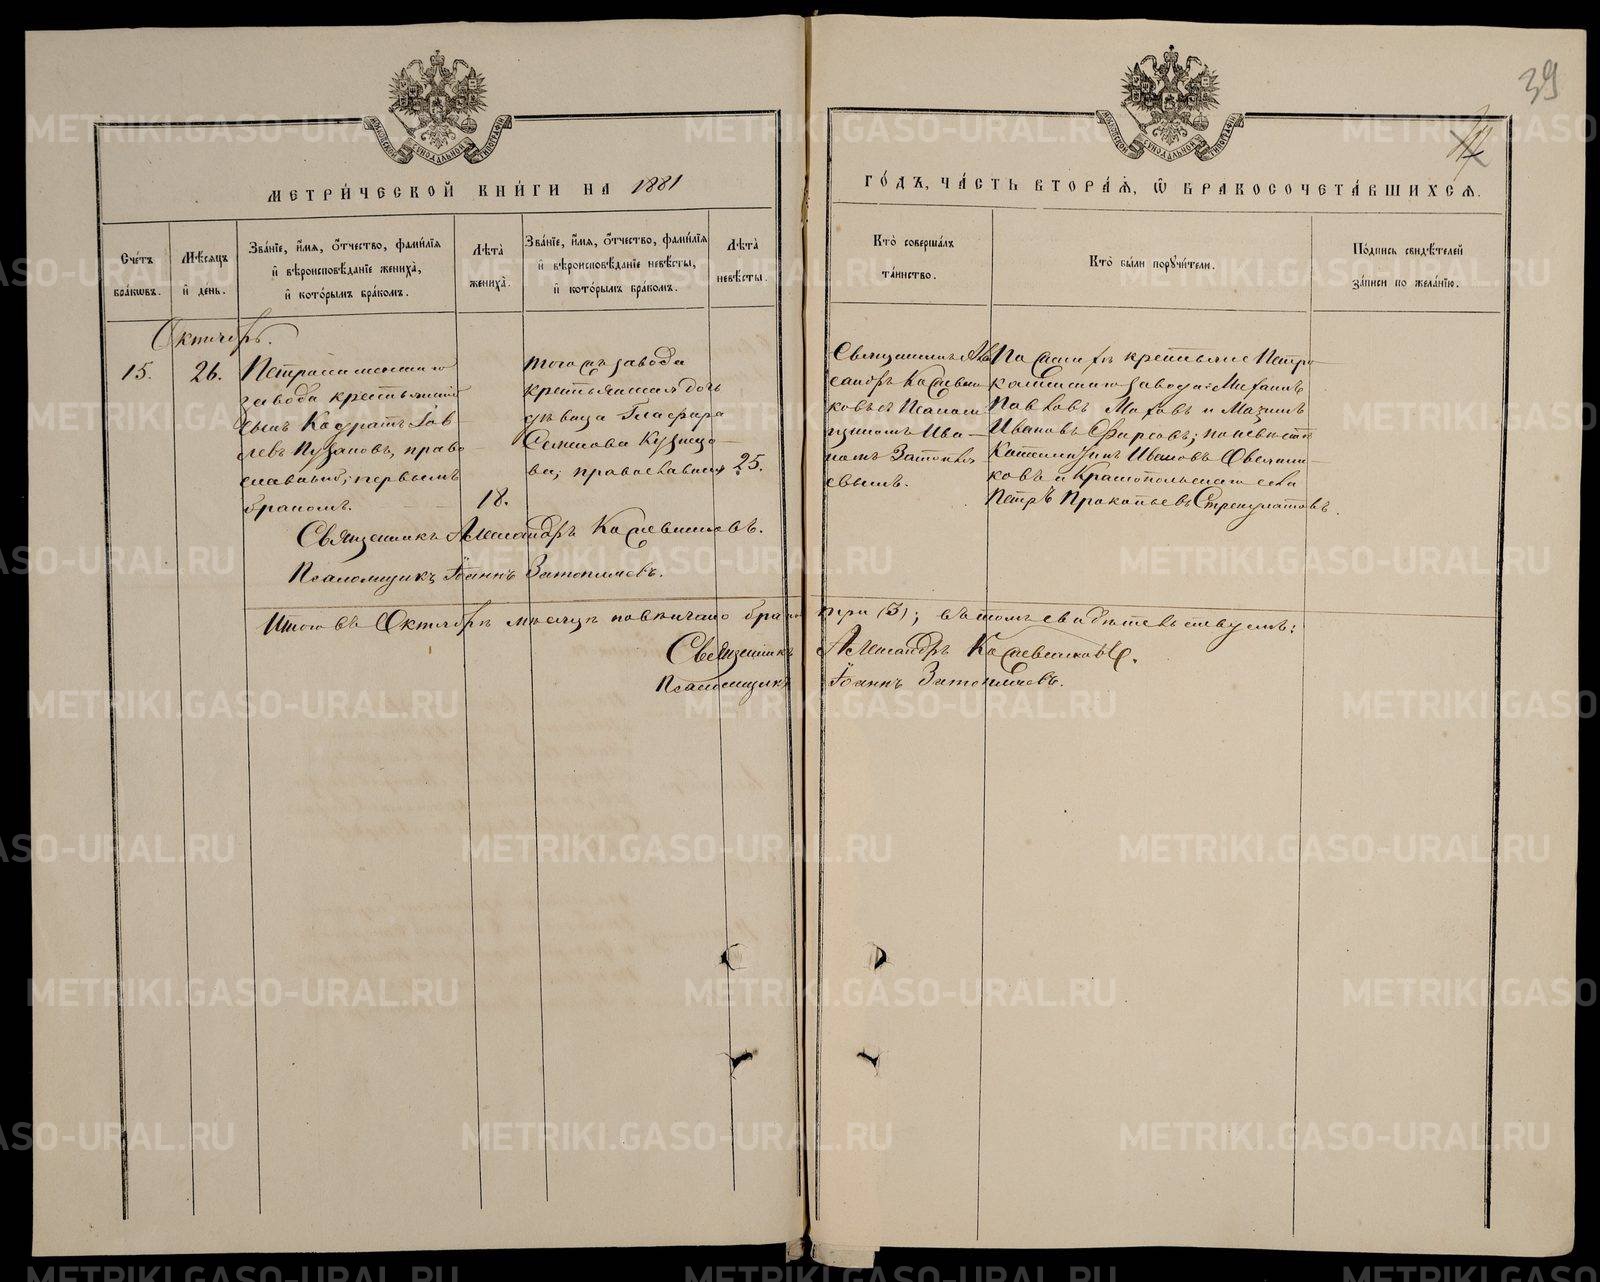 39
МЕТРИ́ЧЕСКОЙ КНИ́ГИ НА 1881
ГО́ДЪ, ЧА́СТЬ ВТОРА́Я, Ѡ БРАКОСОЧЕТА́ВШИХСЯ.
Сче́тъ бра́кѡвъ.
Мѣ́сяцъ и҆ де́нь.
Зва́нїе, и҆́мя, ѻ҆́тчество, фами́лїя
и҆ вѣроисповѣ́данїе жениха̀,
и҆ кото́рымъ бра́комъ.
Лѣ́та жениха̀.
Зва́нїе, и҆́мя, ѻ҆́тчество, фами́лїя
и҆ вѣроисповѣ́данїе невѣ́сты,
и҆ кото́рымъ бра́комъ.
Лѣ́та невѣ́сты.
Кто̀ соверша́лъ
та́инство.
Кто̀ бы́ли поручи́тели.
По́дпись свидѣ́телей
за́писи по жела́нїю.
Октябрь.
15.
26.
Петрокаменскаго
завода крестьянскій
сынъ Кодратъ Іов-
левъ Пузановъ, право-
славный, первымъ
бракомъ.
18.
того жъ завода
крестьянская дочь
дѣвица Глафира
Семенова Кузнецо-
ва, православная
25.
Священникъ Алек
сандръ Кожевни
ковъ съ Псалом
щикомъ Ива-
номъ Затопля
евымъ.
По женихѣ крестьяне Петро
каменскаго завода: Михаилъ
Павловъ и
Ивановъ по невѣстѣ
Ивановъ Овчинни-
ковъ и Краснопольскаго села
Петръ Прокопьевъ
Священникъ Александръ Кожевниковъ.
Псаломщикъ Іоаннъ Затопляевъ.
Итого въ Октябрѣ мѣсяцѣ повѣнчано брака три (3); въ томъ свидѣтельствуемъ:
Священникъ Александръ Кожевниковъ.
Псаломщикъ Іоаннъ Затопляевъ.
METRIKI.GASO-URAL.RU